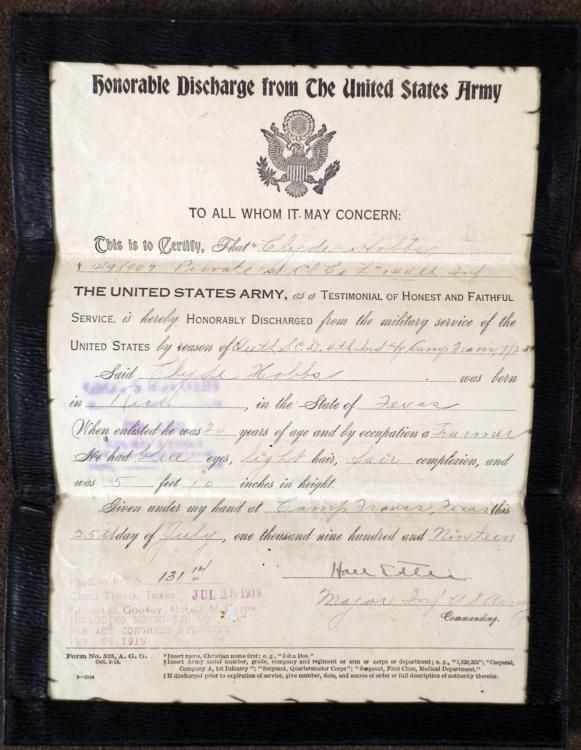 Honorable Discharge from The United States Army
TO ALL WHOM IT MAY CONCERN:
This is to Certify, That * Clyde Hobbs
† Private 1st Cl Co 144th Inf
THE UNITED STATES ARMY, as a TESTIMONIAL OF HONEST AND FAITHFUL
SERVICE, is hereby HONORABLY DISCHARGED from the military service of the
UNITED STATES by reason of Camp Travis,
Said Clyde Hobbs was born
in , in the State of Texas
When enlisted he was 24 years of age and by occupation a Farmer
He had blue eyes, light hair, fair complexion, and
was 5 feet 10 inches in height.
Given under my hand at Camp Travis, Texas this
25th day of July, one thousand nine hundred and Nineteen
Paid in full $ 131 14
Camp Travis, Texas, JUL 25 1919
Major Inf U S Army
Commanding.
INCLUDING BONUS $60.00
PER ACT CONGRESS APPROVED
FEB 24 1919
Form No. 525, A. G. O.
Oct. 9-18.
3—3164
*Insert name, Christian name first; e. g., "John Doe."
†Insert Army serial number, grade, company and regiment or arm or corps or department; e. g., "1,620,302"; "Corporal,
Company A, 1st Infantry"; "Sergeant, Quartermaster Corps"; "Sergeant, First Class, Medical Department."
‡If discharged prior to expiration of service, give number, date, and source of order or full description of authority therefor.